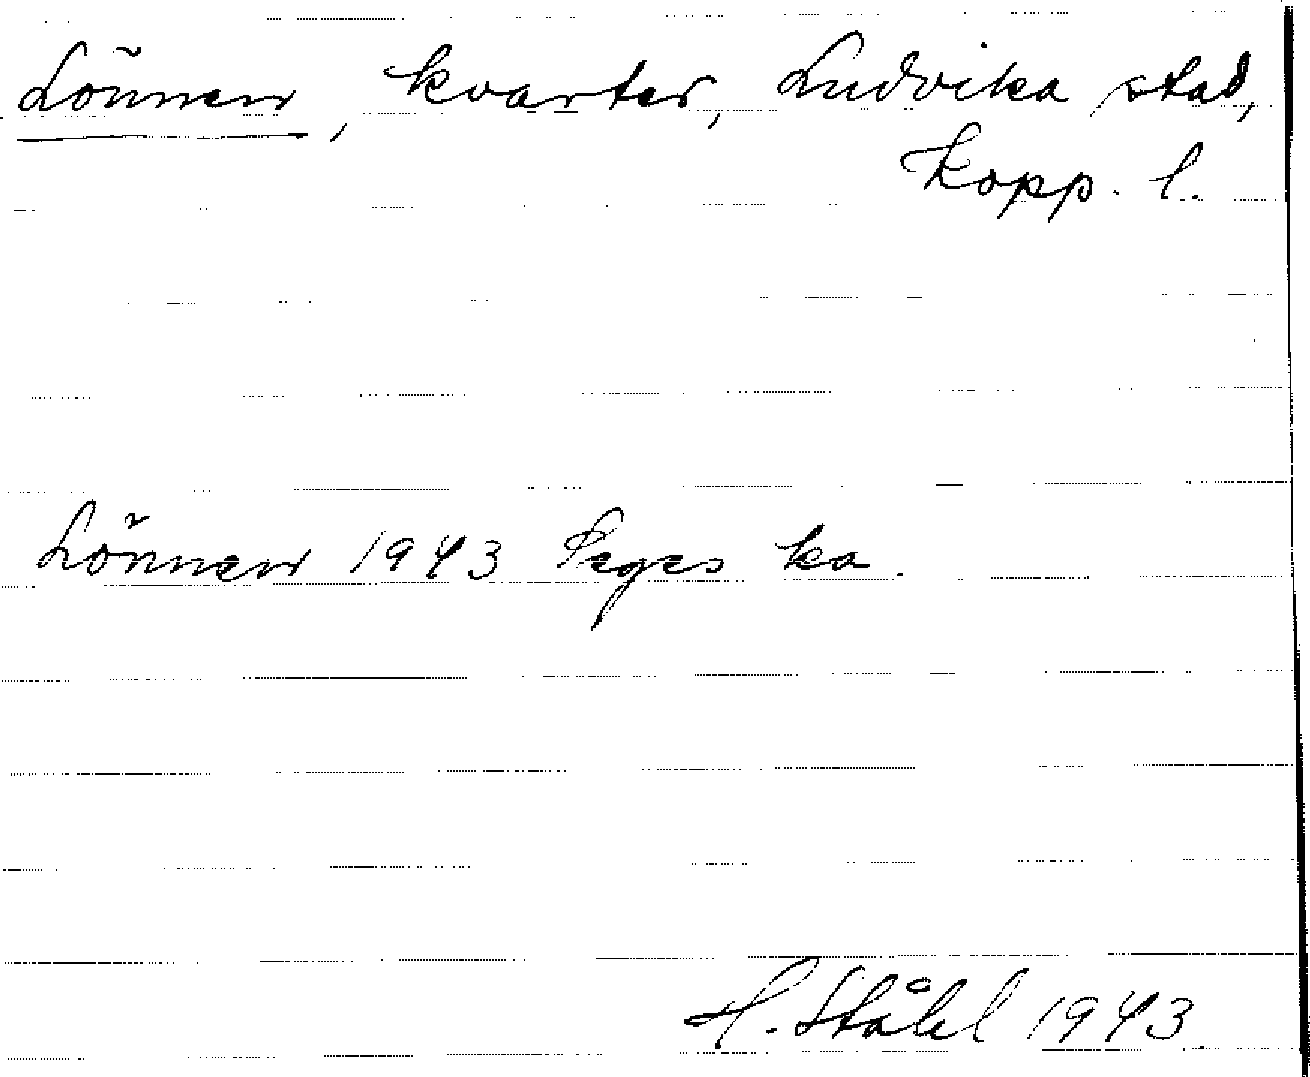 Lönnen, kvarter, Ludvika stad,
Kopp. l.
Lönnen 1943 Seges ka.
H. Ståhl 1943